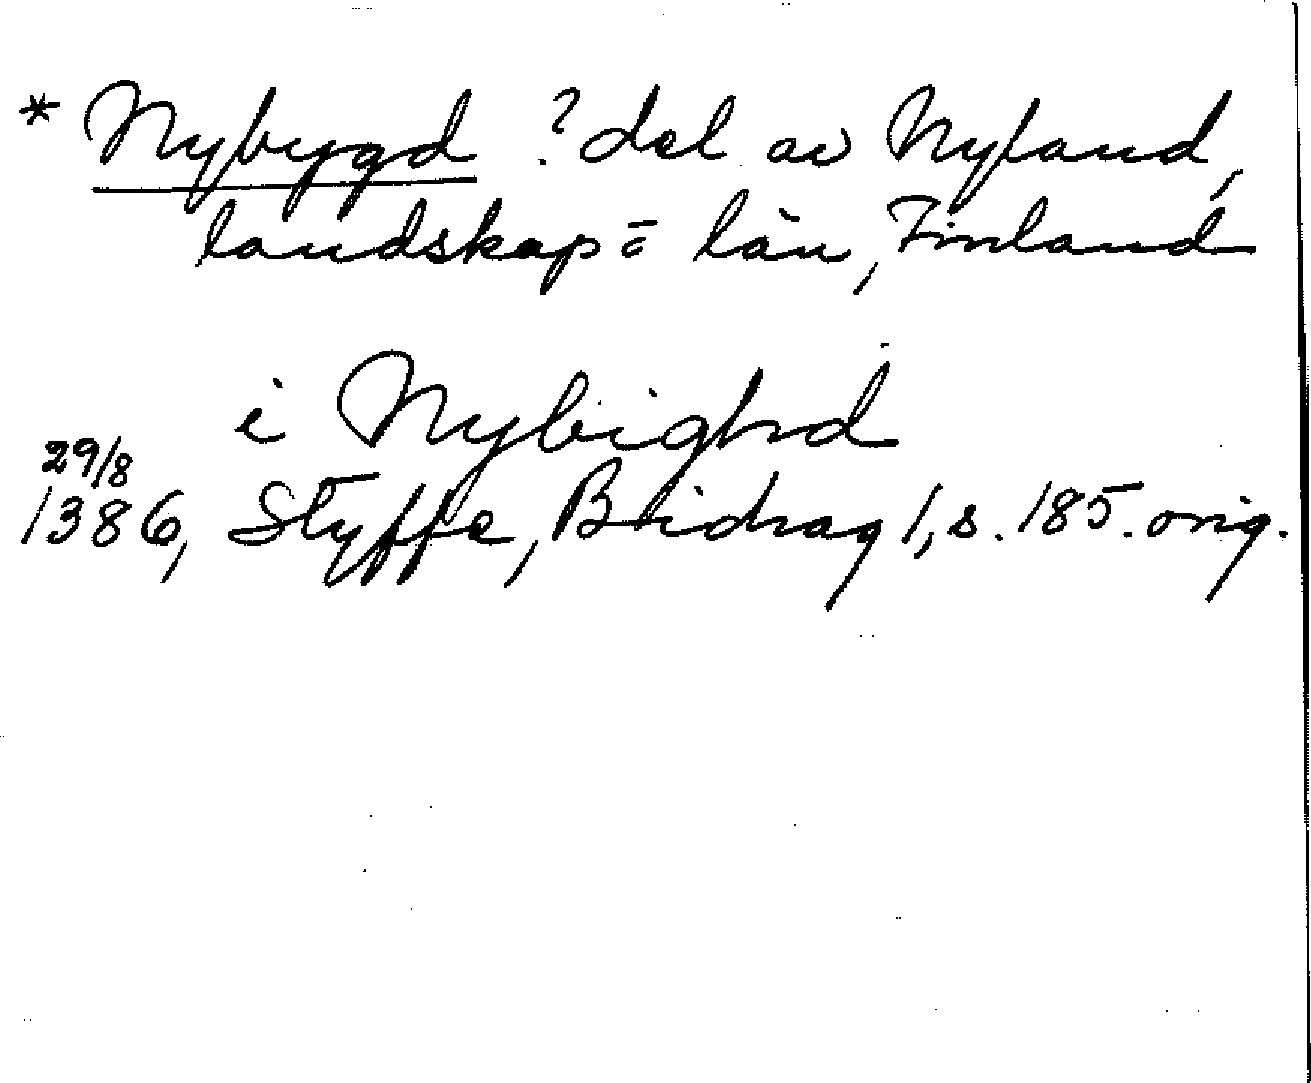 * Nybygd ? del av Nyland,
landskap o län, Finland
i Nybighd
29/8
1386, Styffe, Bidrag 1, s. 185. orig.